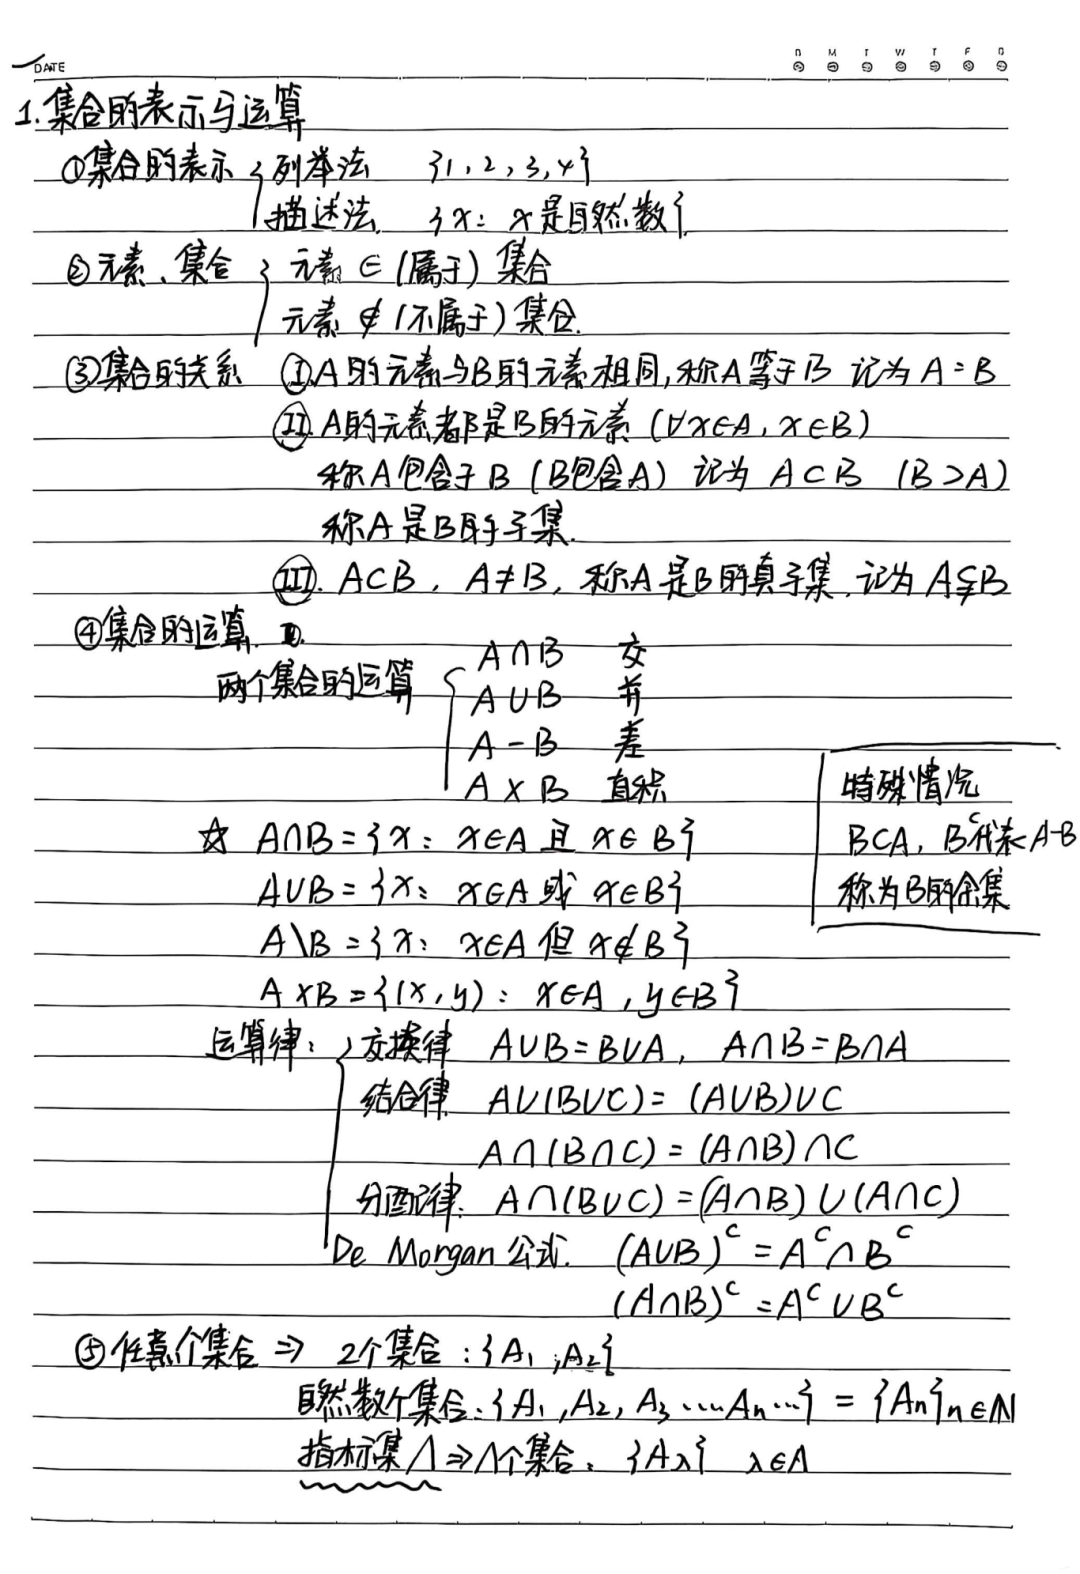 DATE
D M T W T F D
1.集合的表示与运算
①集合的表示 { 列举法 {1,2,3,4}
描述法. {x: x是自然数}.
②元素、集合 { 元素 ∈ (属于) 集合
元素 ∉ (不属于) 集合.
③集合的关系 Ⅰ.A的元素与B的元素相同,称A等于B 记为 A=B
Ⅱ A的元素都是B的元素 (∀x∈A, x∈B)
称A包含于B (B包含A) 记为 A⊂B (B⊃A)
称A是B的子集.
Ⅲ. A⊂B, A≠B, 称A是B的真子集.记为 A⊊B
④集合的运算.
两个集合的运算 { A∩B 交
A∪B 并
A-B 差
A×B 直积
特殊情况
B⊂A, Bᶜ代表A-B
称为B的余集
☆ A∩B={x: x∈A 且 x∈B}
A∪B={x: x∈A 或 x∈B}
A\B={x: x∈A 但 x∉B}
A×B={(x,y): x∈A,y∈B}
运算律: { 交换律 A∪B=B∪A, A∩B=B∩A
结合律 A∪(B∪C)=(A∪B)∪C
A∩(B∩C)=(A∩B)∩C
分配律. A∩(B∪C)=(A∩B)∪(A∩C)
De Morgan 公式. (A∪B)ᶜ=Aᶜ∩Bᶜ
(A∩B)ᶜ=Aᶜ∪Bᶜ
⑤任意个集合 ⇒ 2个集合:{A₁,A₂}
自然数个集合:{A₁,A₂,A₃……Aₙ…}={Aₙ}n∈N
指标集Λ⇒Λ个集合: {Aλ} λ∈Λ